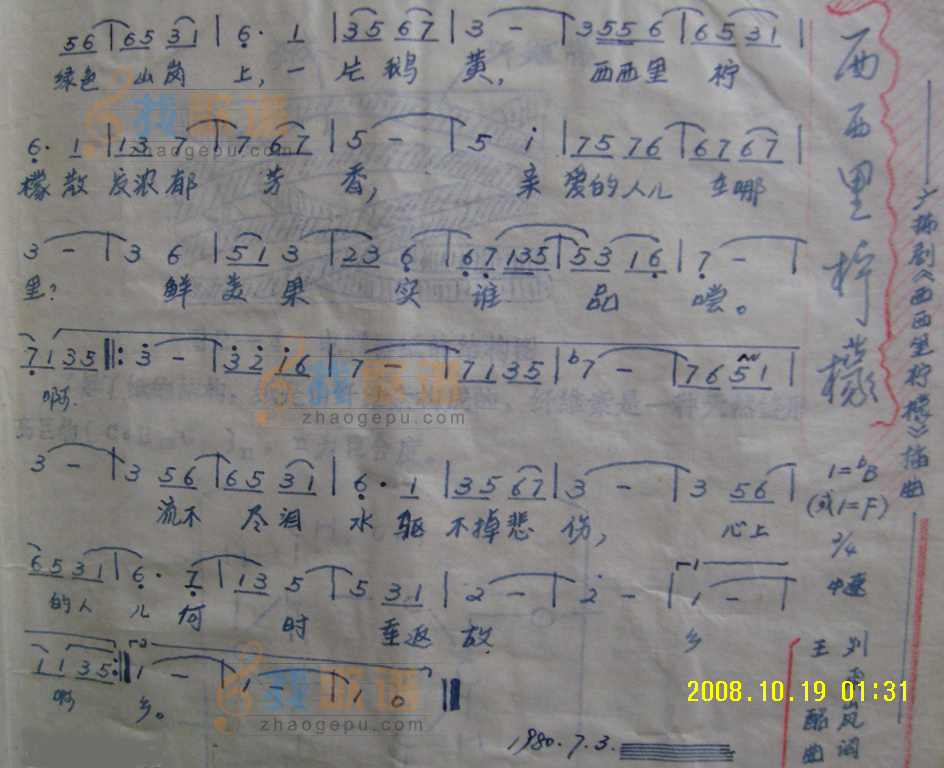 西西里柠檬
——广播剧《西西里柠檬》插曲——
1=ᵇB
(或1=F)
2/4
中速
刘 风词
王 酩曲
56 | 65 31 | 6· 1 | 35 67 | 3 - | 3556 | 6531 |
绿色 山岗 上,一 片 鹅 黄, 西西里 柠
6· 1 | 13 7 | 7 67 | 5 - | 5 i | 75 76 | 67 67 |
檬散发浓郁 芳 香, 亲 爱的人儿 在哪
3 - | 3 6 | 51 3 | 23 6 | 67 135 | 53 16 | 7 - |
里? 鲜 美 果 实 谁 品 嚐。
7135 ‖: 3 - | 3216 | 7 - | 7135 | ᵇ7 - | 7651 |
啊.
3 - | 3 56 | 65 31 | 6· 1 | 35 67 | 3 - | 3 56 |
流不 尽泪 水 驱 不掉悲 伤, 心上
6531 | 6· 7 | 13 5 | 5 31 | 2 - | 2 - | 1 - |
的人 儿 何 时 重返 故 乡
1135 :‖ 1 - | 1 - | 1 0 ‖
啊 乡。
1980.7.3.
2008.10.19 01:31
找歌谱
zhaogepu.com
找歌谱
zhaogepu.com
找歌谱
zhaogepu.com